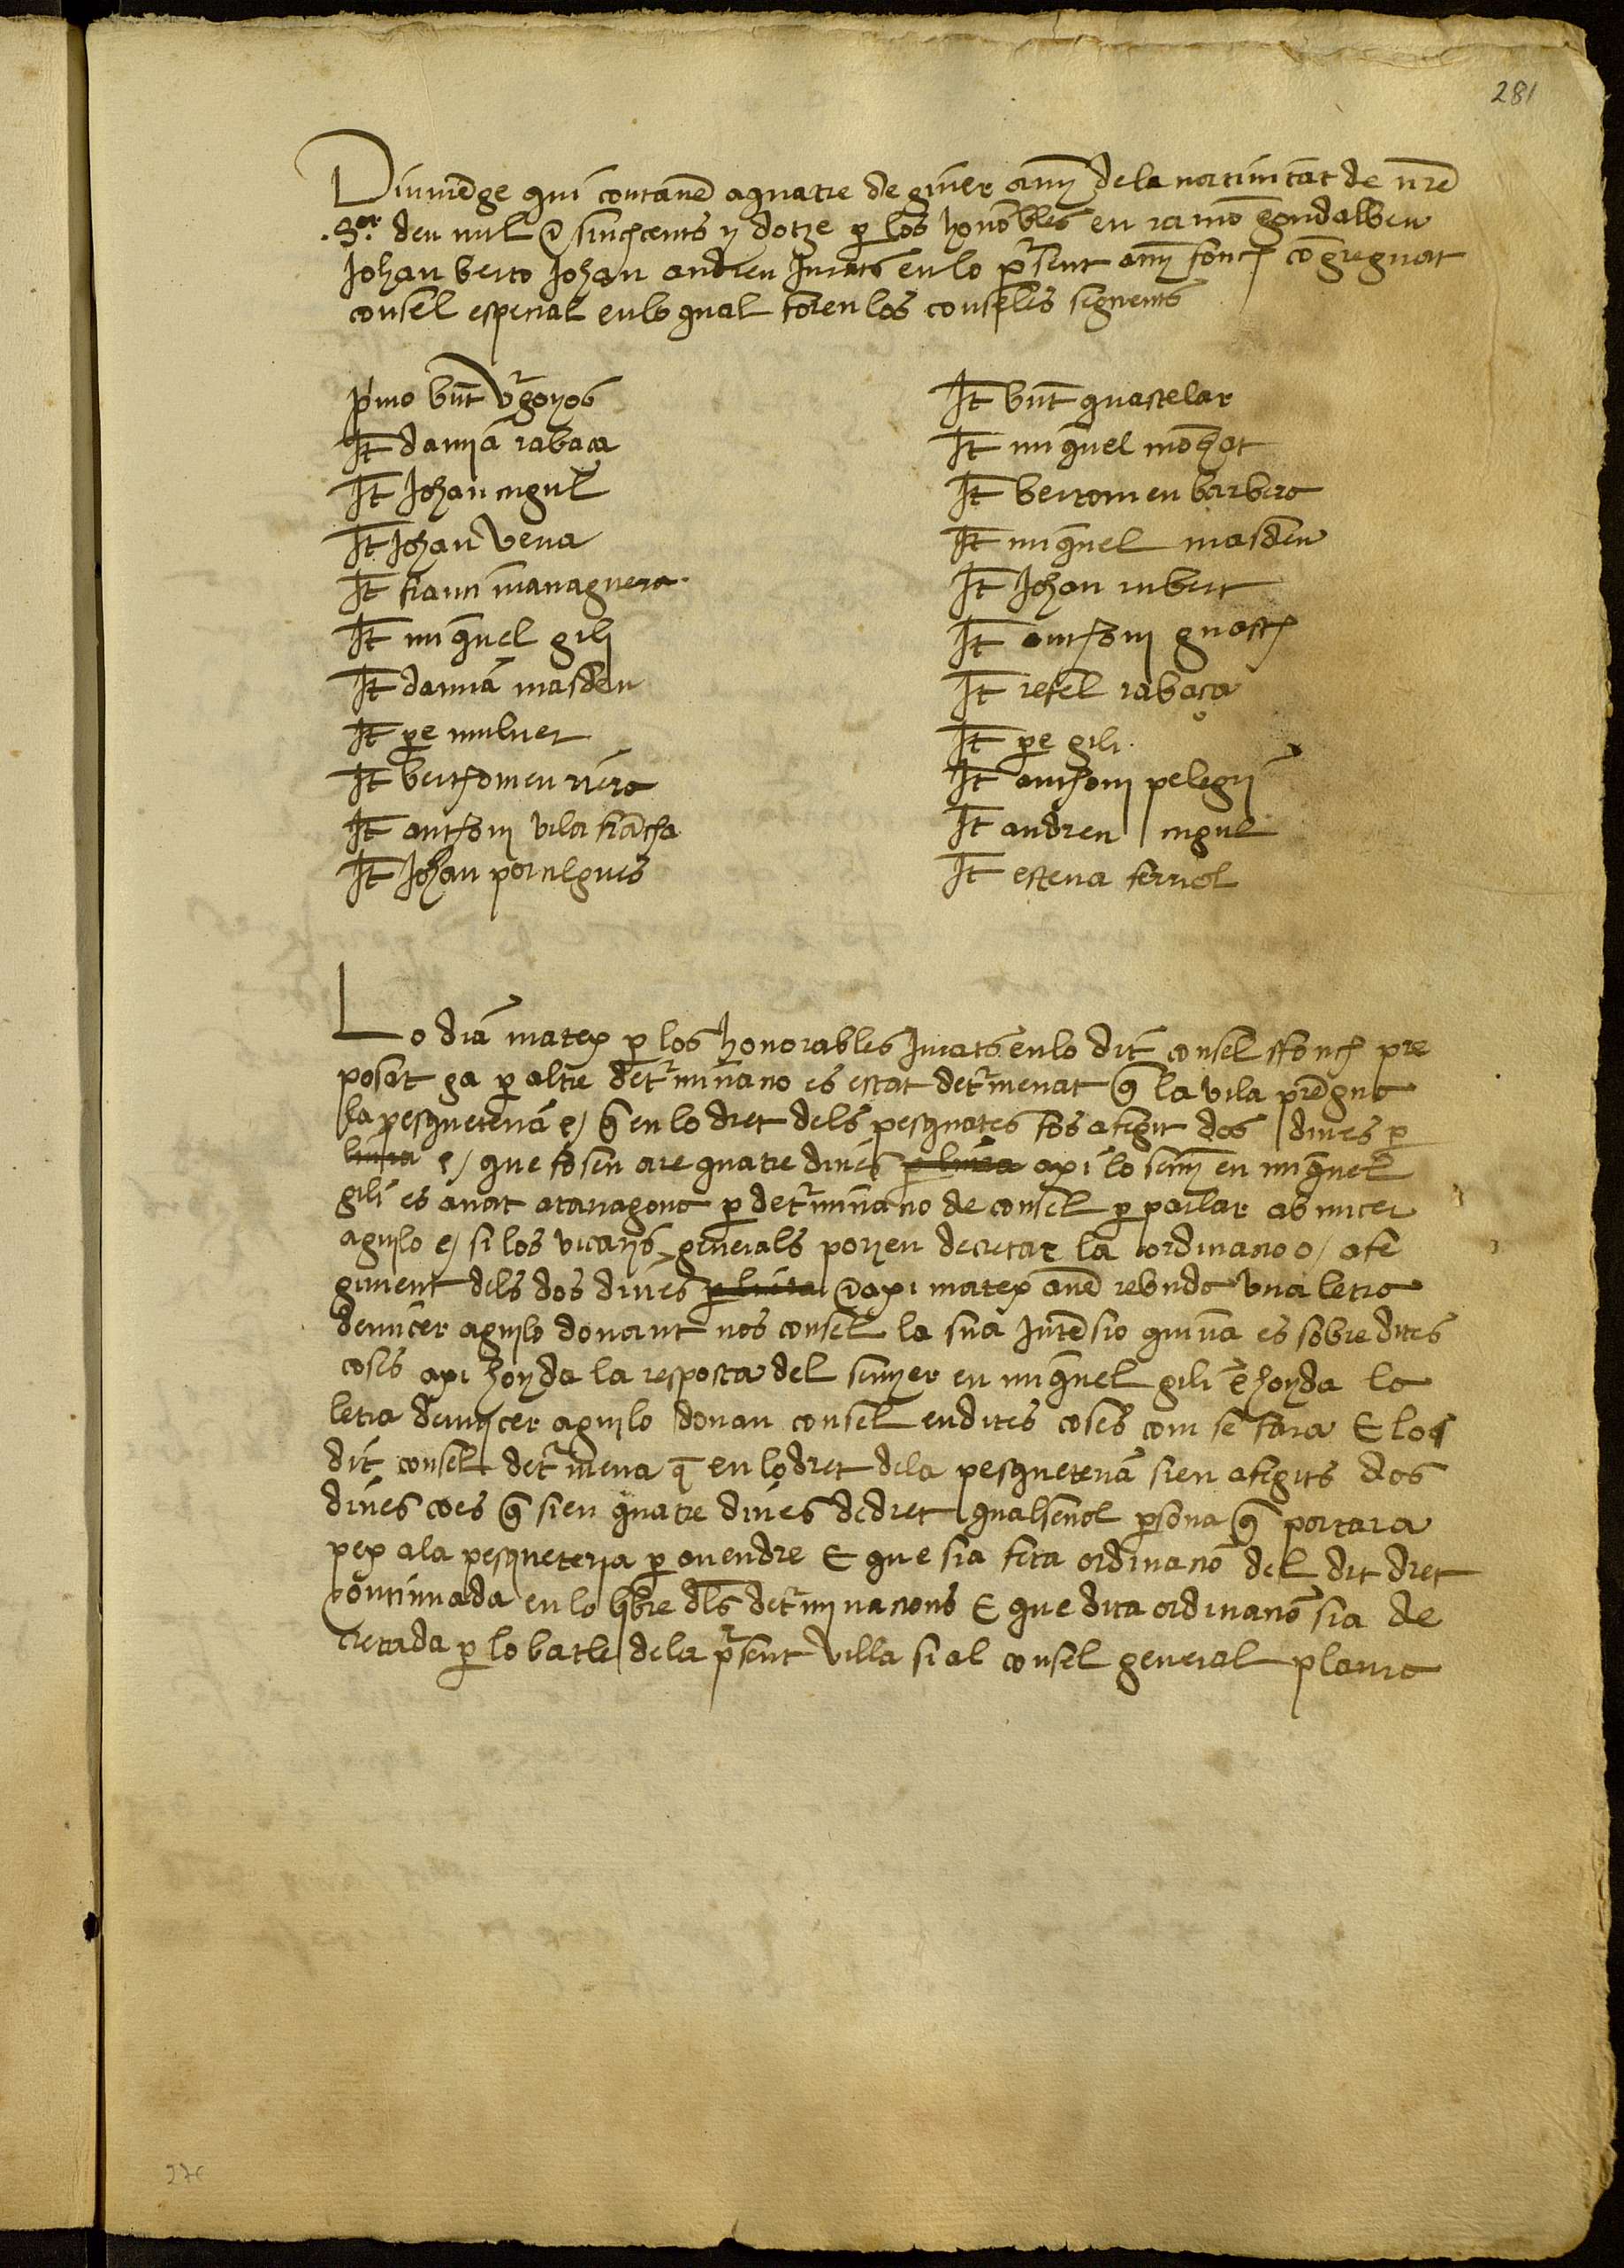 281
Diumẽge qui contauẽ a quatre de giner any de la natiuitat de nr̃e
.Sor. deu mil e sinchcents y dotze p los honobles en ramo gondalbeu
Johan berto Johan andreu Jurats en lo pr̃sent any fonch cõgreguat
consel especial en lo qual foren los conselés seguents
pºmo bñt vrgoyos
It damiã rabaça
It Johan cugul
It Johan vena
It franci managuera
It miquel gili
It damiã masdeu
It pe muluer
It berthomeu riera
It anthoni vila frãcha
It Johan portugues
It bñt guastelar
It miquel
It bertomeu barbera
It miquel masdeu
It Johan rubert
It anthoni guasch
It refel rabaça
It pe gili
It anthoni pelegrj
It andreu cugul
It esteua ferriol
Lo dia matex p los honorables Jurats en lo dit consel ffonch pre
posat ga p altre detrminacio es estat detrmenat q̃ la vila prẽgua
la pesqueteria e/ q̃ en lo dret dels pesquates fos afegit dos dines p
liura e/ que fosen are quatre dines p liura axi lo seny en miquel
gili es anat a tarragona p detrminacio de consel p parlar ab micer
aguilo e/ si los vicaris generals porien decretar la ordinacio o/ afe
giment dels dos dines p liura e axi matex auẽ rebuda vna letra
de micer aguilo donant nos consel la sua Intẽsio quina es sobre dites
coses axi hoyda la resposta del senyer en miquel gili e hoyda la
letra de mjcer aguilo donau consel en dites coses com se fara E lo
dit consel detrmena q̃ en lo dret de la pesqueteria sien afegits dos
dines coes q̃ sien quatre dines de dret qualseuol psona q̃ portara
pex a la pesqueteria p a uendre E que sia feta ordinacio del dit dret
continuada en lo libre dls detrminacions E que dita ordinacio sia de
cretada p lo batle de la pr̃sent villa si al consel general plaura
276